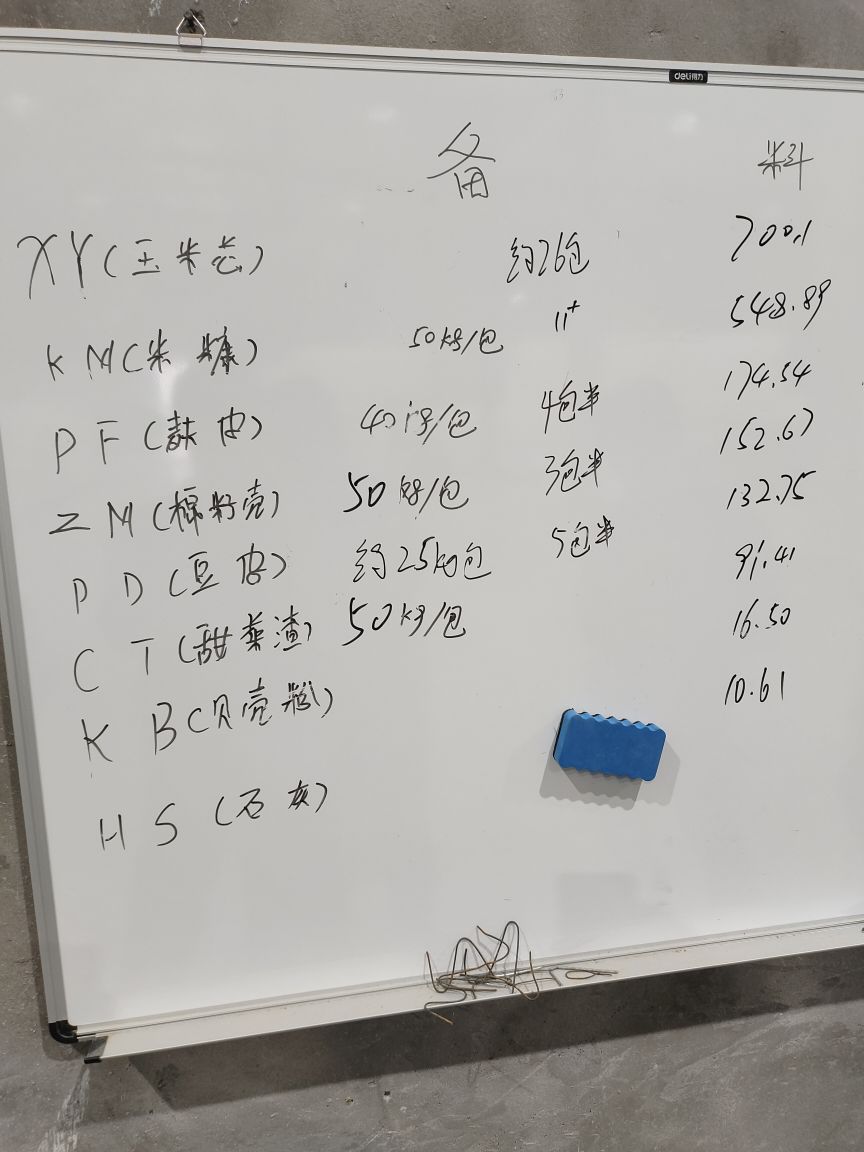 deli得力
备 料
XY(玉米芯) 约26包 700.1
KM(米糠) 50kg/包 11+ 548.89
PF(麸皮) 40kg/包 4包半 174.54
ZM(棉籽壳) 50kg/包 3包半 152.67
PD(豆皮) 约25kg包 5包半 132.75
CT(甜菜渣) 50kg/包 91.41
KB(贝壳粉) 16.50
HS(石灰) 10.61